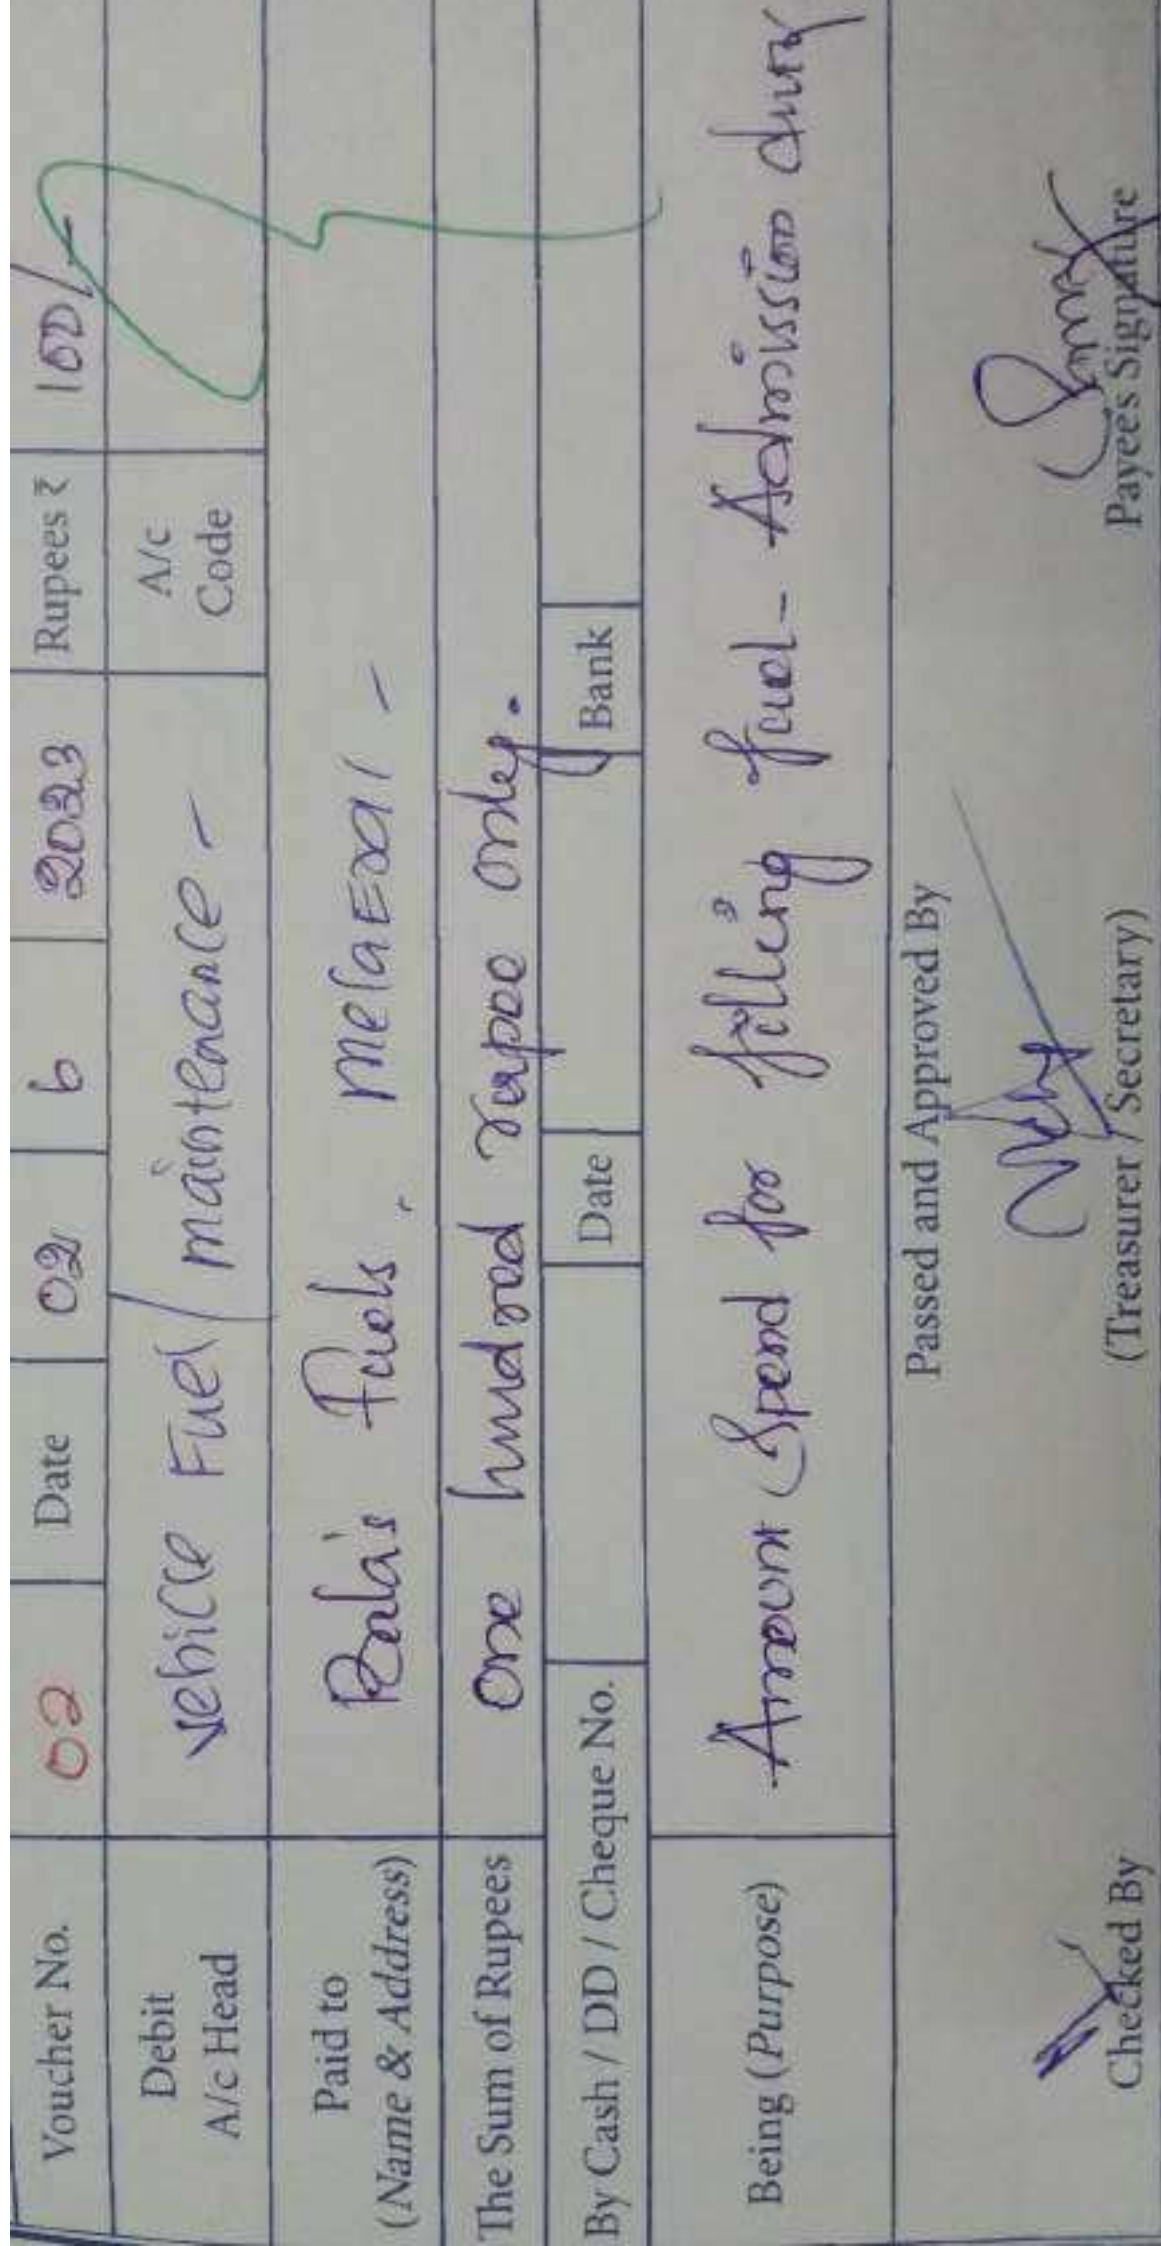 Voucher No. 02 Date 02 6 2023 Rupees ₹ 100/-
Debit A/c Head Vehicle Fuel / maintenance - A/c Code
Paid to (Name & Address) Bala's Fuels,
The Sum of Rupees One hundred rupee only.
By Cash / DD / Cheque No. Date Bank
Being (Purpose) Amount Spend for filling fuel - Admission duty
Passed and Approved By
Checked By (Treasurer / Secretary) Payee's Signature